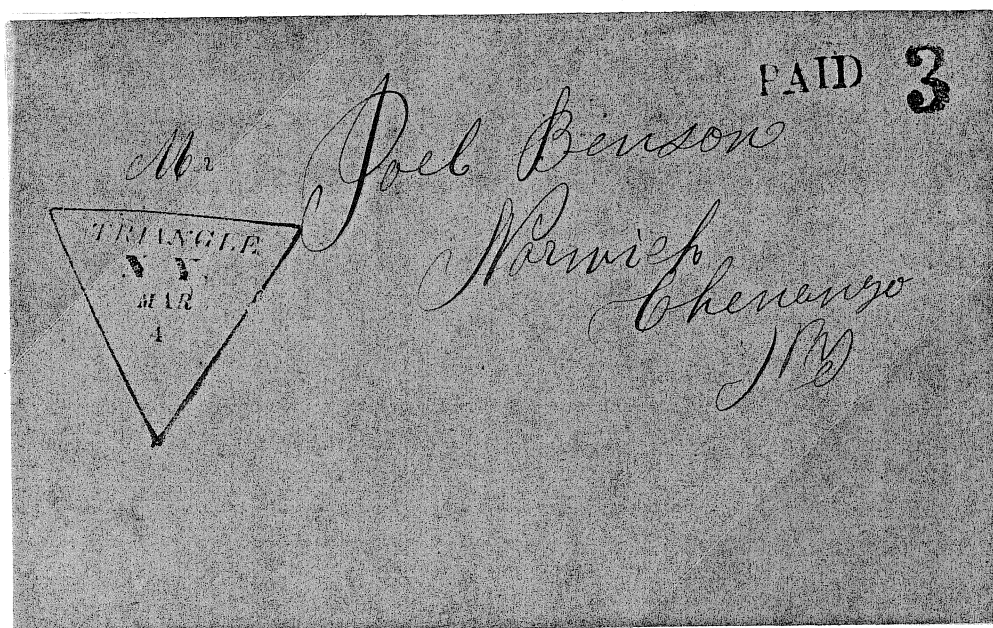 PAID 3
Mr Joel Benson
Norwich
Chenango
NY
TRIANGLE
N.Y.
MAR
4